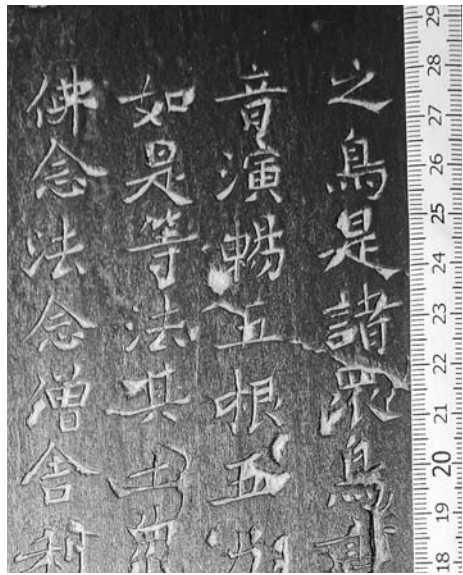 之鳥是諸眾鳥
音演暢五根五
如是等法其土眾
佛念法念僧舍利
29
28
27
26
25
24
23
22
21
20
19
18